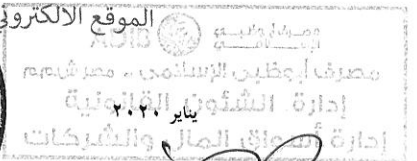 الموقع الالكترو
مصرف أبوظبي الإسلامي
ADIB
مصرف أبوظبي الإسلامي - مصر ش.م.م
إدارة الشئون القانونية
يناير ٢٠٢٠
إدارة أسواق المال والشركات